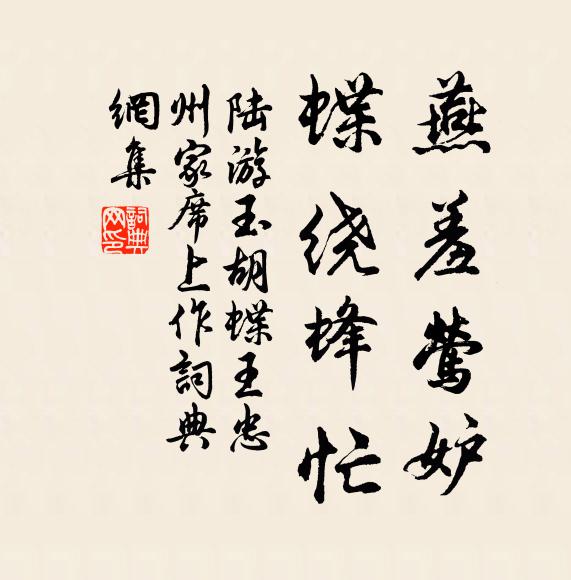 燕羞莺妒
蝶绕蜂忙
陆游玉胡蝶王忠
州家席上作詞典
網集
詞典网印